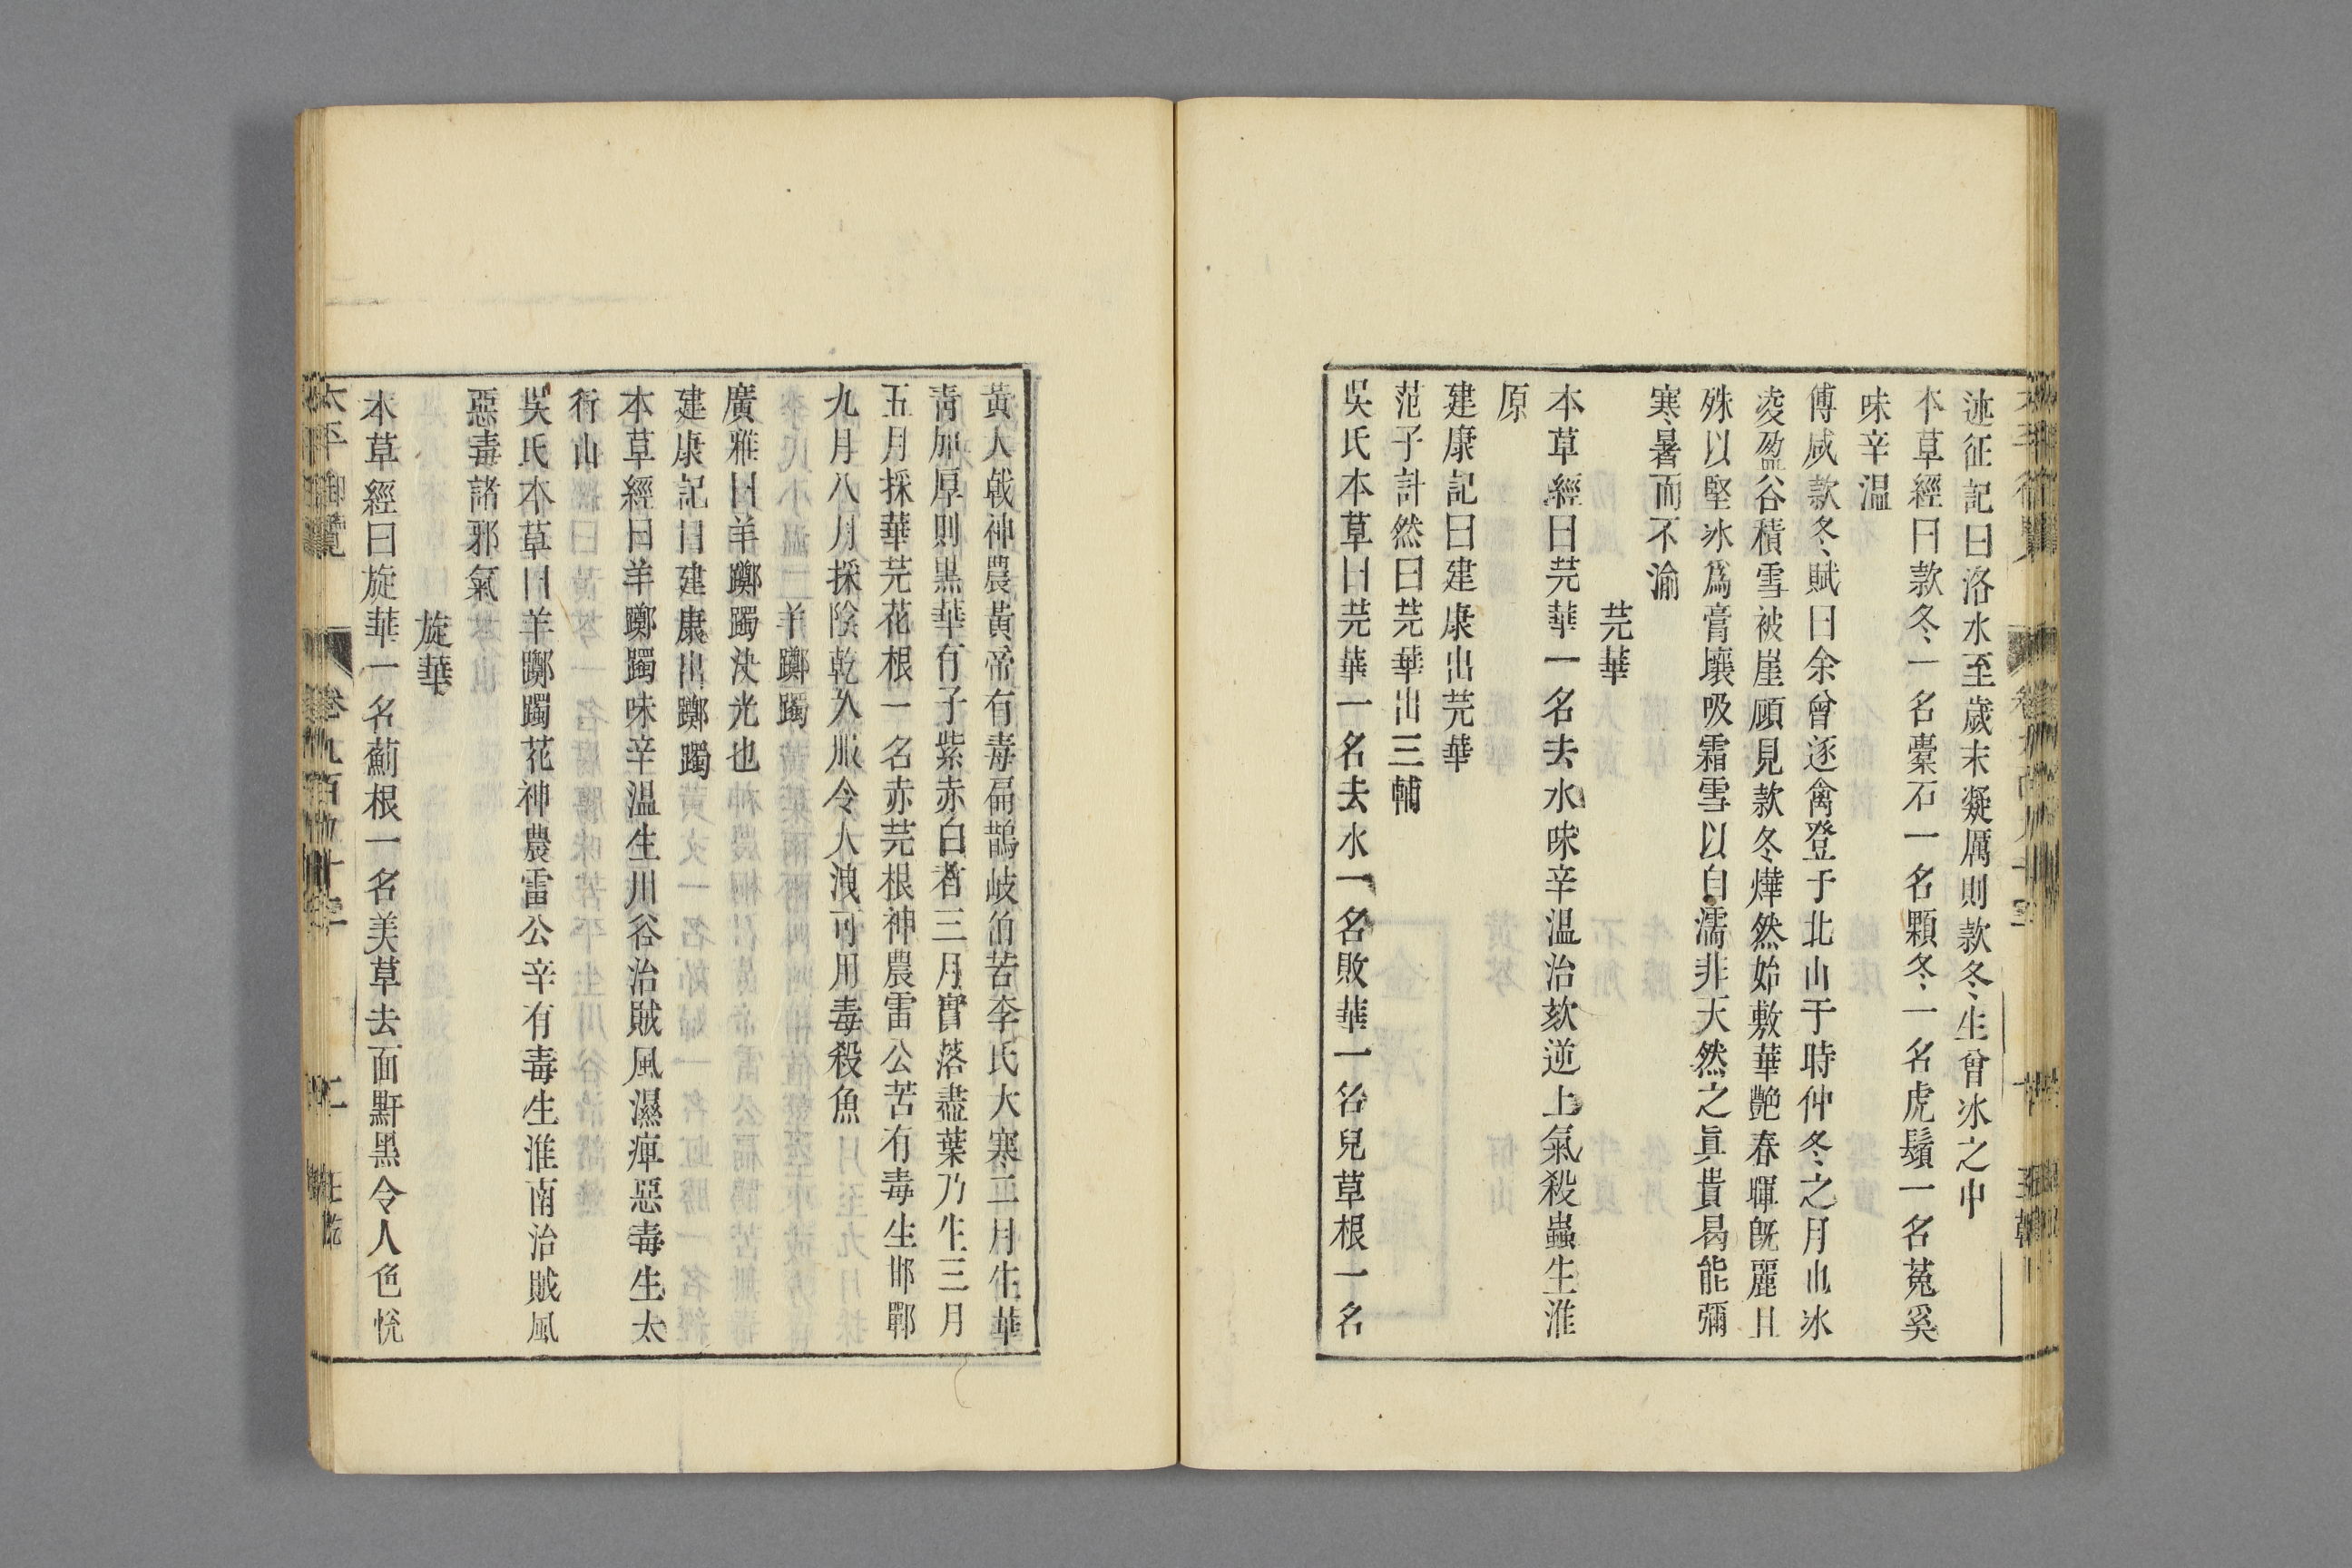 述征記曰洛水至歲末凝厲則款冬生曾冰之中
本草經曰款冬一名橐石一名顆冬一名虎鬚一名菟奚
味辛温
傅咸款冬賦曰余曾逐禽登于北山于時仲冬之月也冰
凌盈谷積雪被崖顧見款冬煒然始敷華艷春暉旣麗且
殊以堅冰爲膏壤吸霜雪以自濡非天然之眞貴曷能彌
寒暑而不渝
芫華
本草經曰芫華一名去水味辛温治欬逆上氣殺蟲生淮
原
建康記曰建康出芫華
范子計然曰芫華出三輔
吳氏本草曰芫華一名去水一名敗華一名兒草根一名
黃大戟神農黃帝有毒扁鵲岐伯苦李氏大寒二月生華
靑加厚則黑華有子紫赤白者三月實落盡葉乃生三月
五月採華芫花根一名赤芫根神農雷公苦有毒生邯鄲
九月八月採陰乾久服令人洩可用毒殺魚
羊躑躅
廣雅曰羊躑躅決光也
建康記曰建康出躑躅
本草經曰羊躑躅味辛温生川谷治賊風濕痺惡毒生太
行山
吳氏本草曰羊躑躅花神農雷公辛有毒生淮南治賊風
惡毒諸邪氣
旋華
本草經曰旋華一名葪根一名美草去面皯黑令人色恱
太平御覽